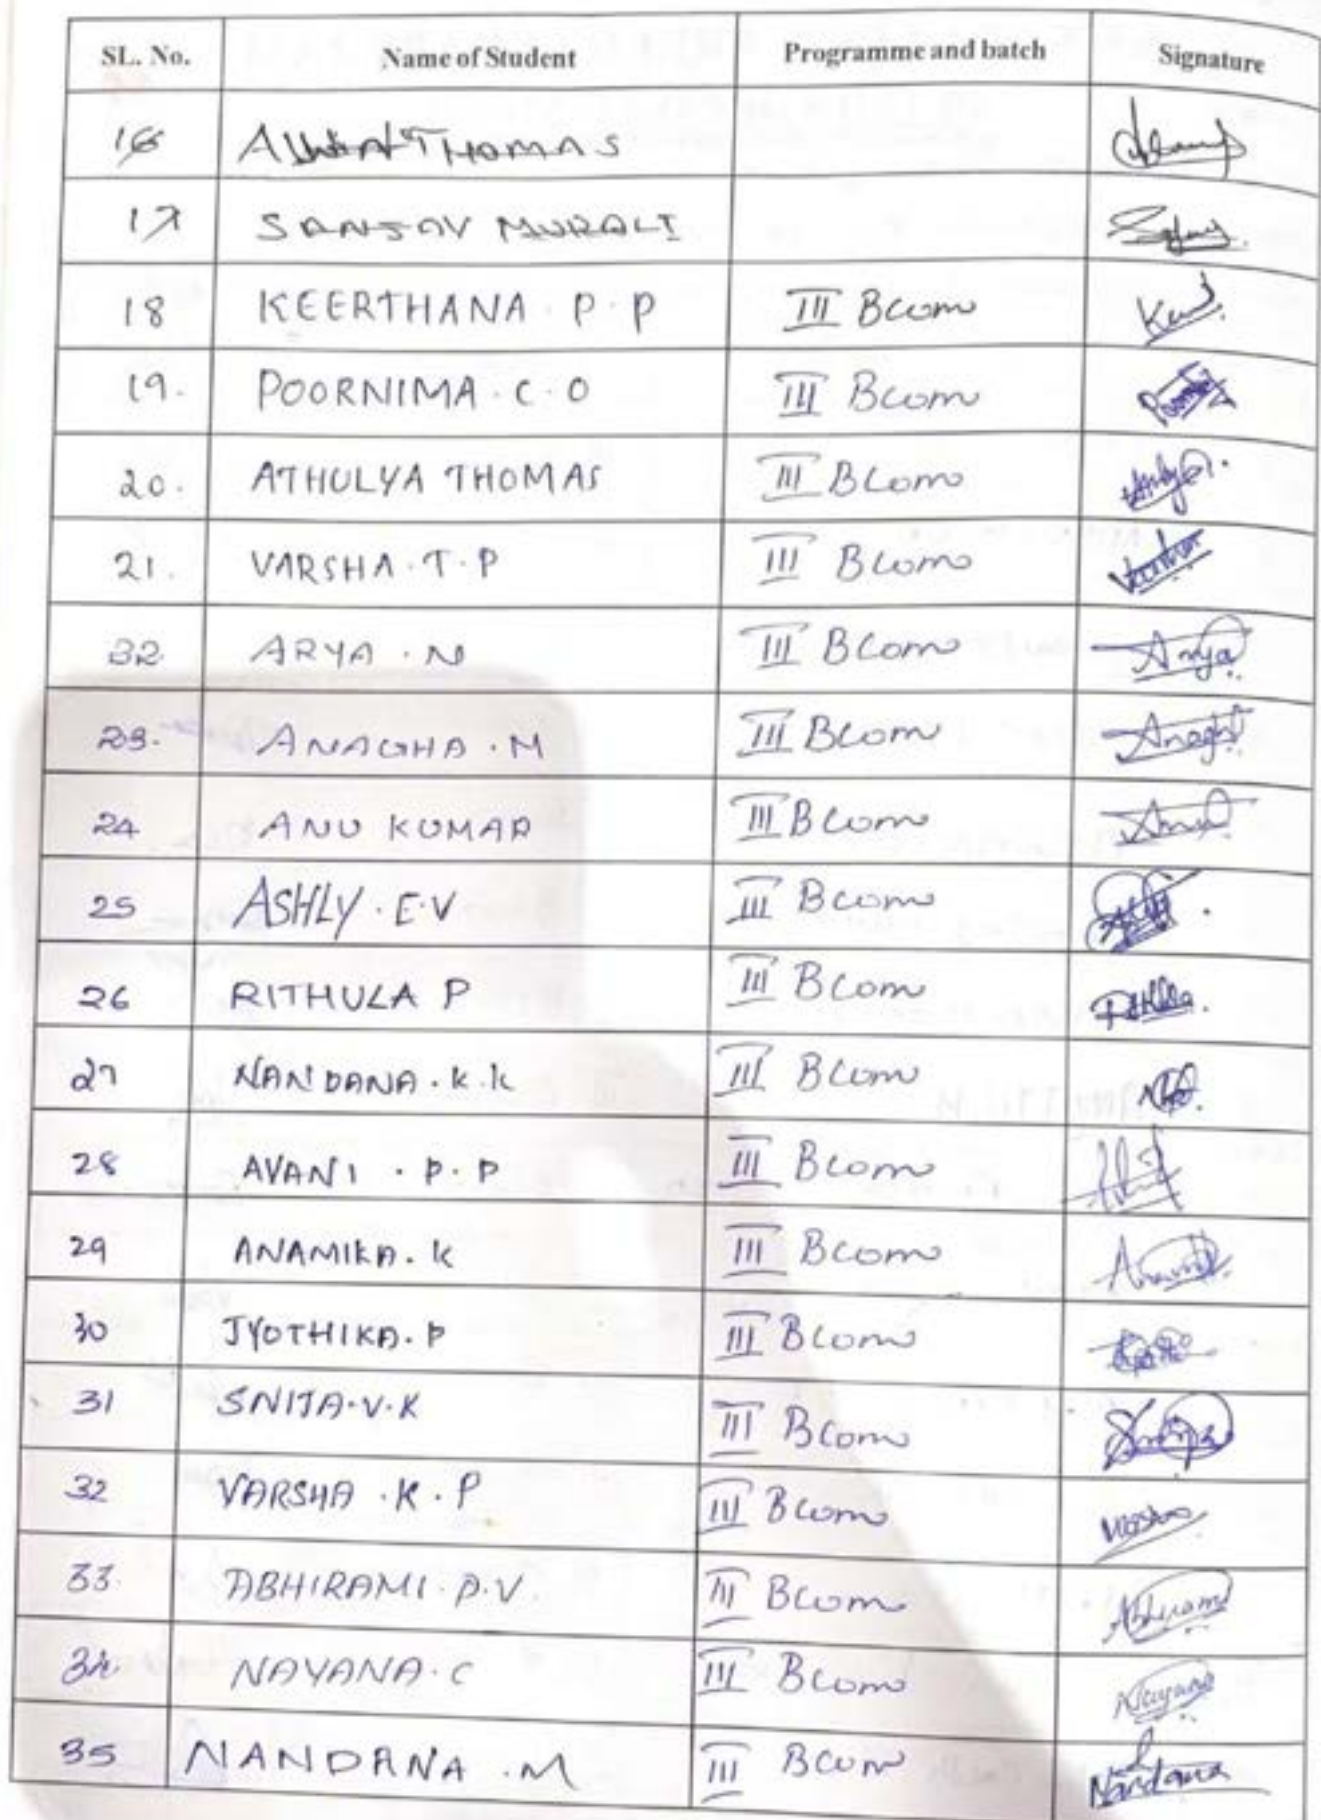 SL. No. Name of Student Programme and batch Signature
16 THOMAS
17 SANJAY MURALI
18 KEERTHANA P.P III Bcom
19. POORNIMA.C.O III Bcom
20. ATHULYA THOMAS III Bcom
21. VARSHA.T.P III Bcom
22 ARYA.N III Bcom Arya
23. ANAGHA.M III Bcom Anagha
24 ANU KUMAR III Bcom
25 ASHLY.E.V III Bcom
26 RITHULA P III Bcom
27 NANDANA.K.K III Bcom
28 AVANI.P.P III Bcom
29 ANAMIKA.K III Bcom
30 JYOTHIKA.P III Bcom
31 SNIJA.V.K III Bcom
32 VARSHA.K.P III Bcom
33. ABHIRAMI.P.V. III Bcom
34. NAYANA.C III Bcom Nayana
35 NANDANA.M III Bcom Nandana